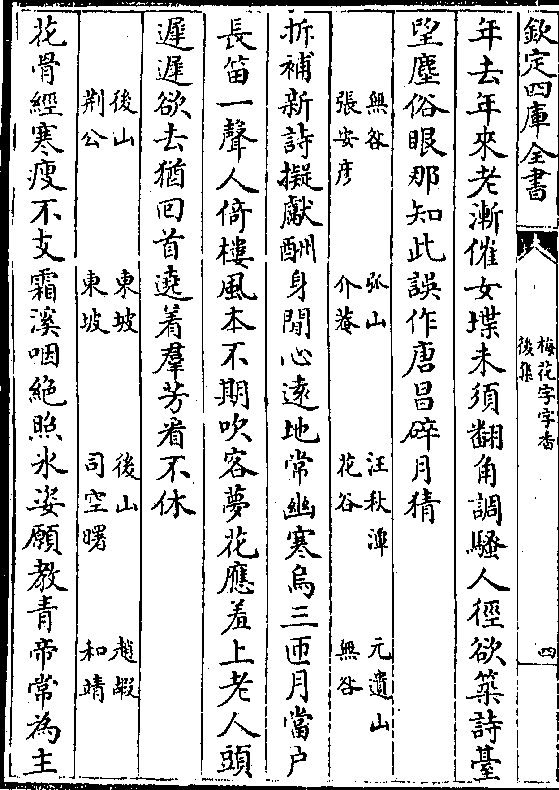 欽定四庫全書
梅花字字香
後集
四
年去年來老漸催女堞未須翻角調騷人徑欲築詩臺
望塵俗眼那知此誤作唐昌碎月猜
無咎 弥山 汪秋潭 元遺山
張安彦 介菴 花谷 無咎
拆補新詩擬獻酬身閒心逺地常幽寒烏三匝月當户
長笛一聲人倚樓風本不期吹客夢花應羞上老人頭
遲遲欲去猶回首遶着羣芳看不休
後山 東坡 後山 趙嘏
荆公 東坡 司空曙 和靖
花骨經寒瘦不支霜溪咽絶照氷姿願教青帝常為主